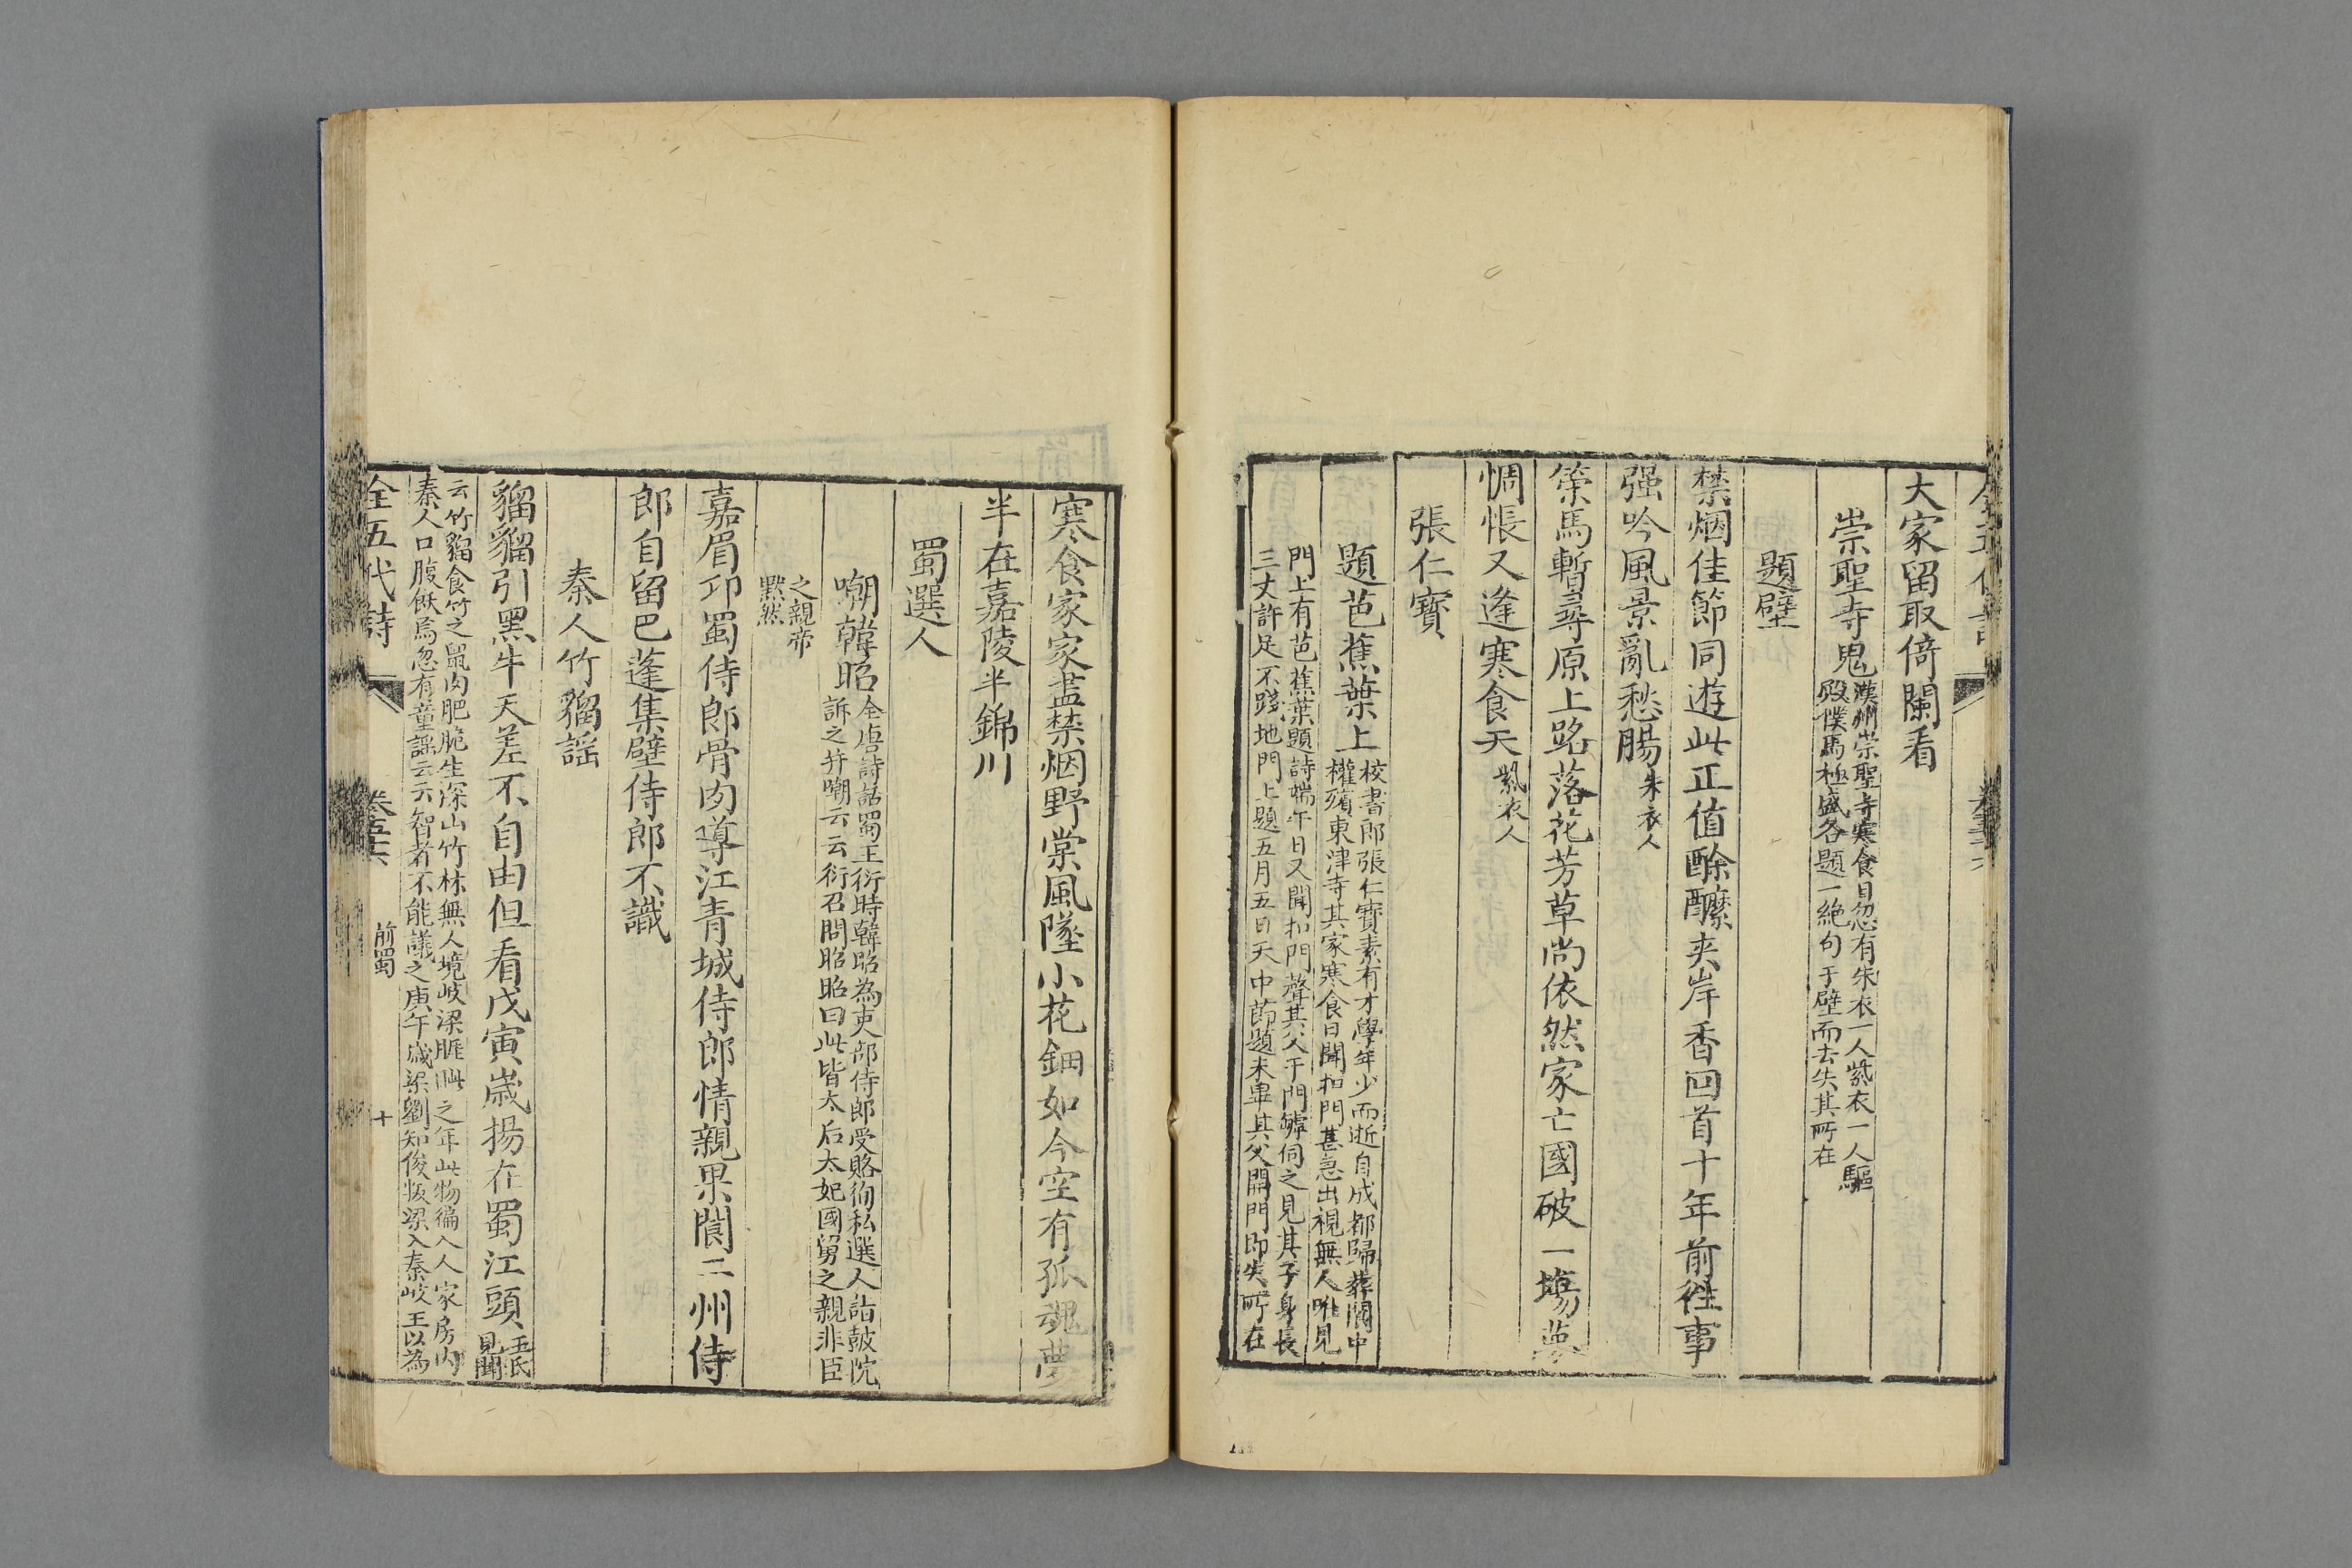 大家留取倚闌看
崇聖寺鬼
漢州崇聖寺寒食日忽有朱衣一人紫衣一人驅
殿僕馬極盛各題一絶句于壁而去失其所在
題壁
禁烟佳節同遊此正值酴醿夾岸香回首十年前徃事
强吟風景亂愁腸朱衣人
策馬暫尋原上路落花芳草尚依然家亡國破一塲夢
惆悵又逢寒食天紫衣人
張仁寶
題芭蕉葉上
校書郎張仁寶素有才學年少而逝自成都歸葬閬中
權殯東津寺其家寒食日聞扣門甚急出視無人唯見
門上有芭蕉葉題詩端午日又聞扣門聲其父于門罅伺之見其子身長
三丈許足不踐地門上題五月五日天中節題未畢其父開門即失所在
寒食家家盡禁烟野棠風墜小花鈿如今空有孤魂夢
半在嘉陵半錦川
蜀選人
嘲韓昭
全唐詩話蜀王衍時韓昭為吏部侍郎受賂徇私選人詣鼓院
訴之并嘲云云衍召問昭昭曰此皆太后太妃國舅之親非臣
之親帝
默然
嘉眉邛蜀侍郎骨肉導江青城侍郎情親果閬二州侍
郎自留巴蓬集壁侍郎不識
秦人竹䶉謡
䶉䶉引黑牛天差不自由但看戊寅歲揚在蜀江頭
王氏
見聞
云竹䶉食竹之鼠肉肥脆生深山竹林無人境岐梁睚眦之年此物徧入人家房内
秦人口腹飫焉忽有童謡云云智者不能議之庚午歲梁劉知俊叛梁入秦岐王以為
全五代詩
卷五十六
前蜀
十